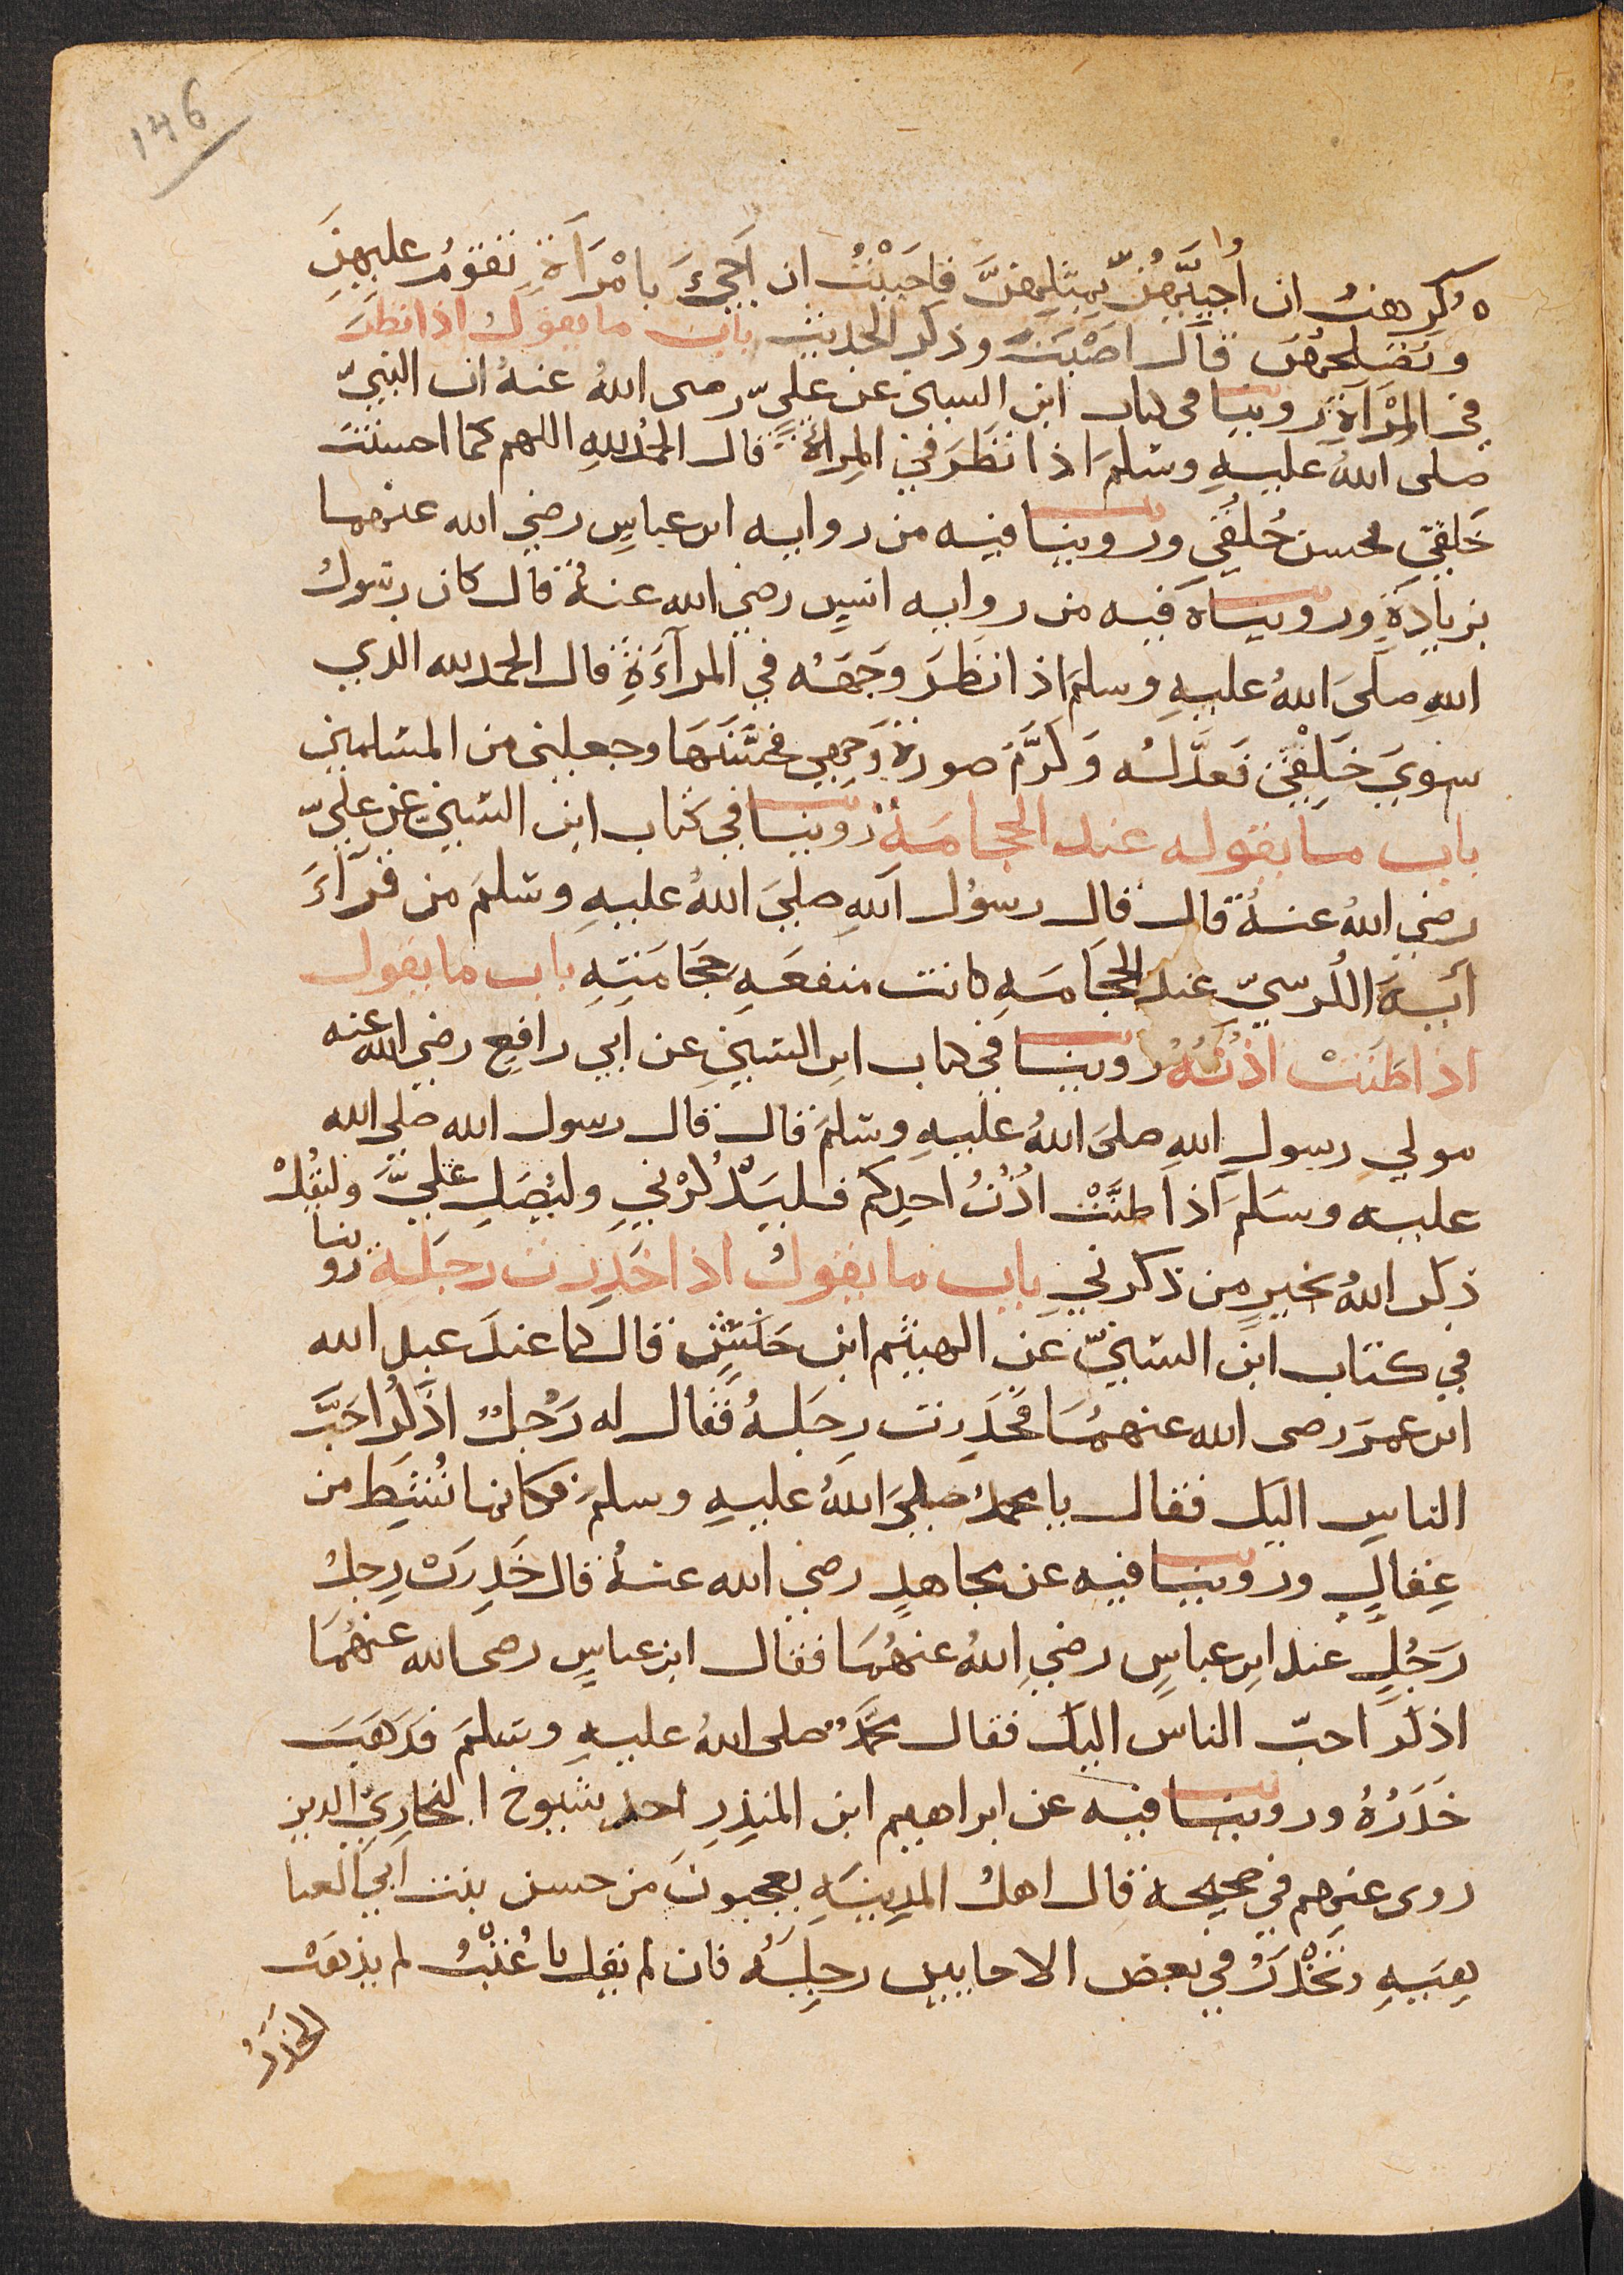 146
وكرهت ان اجيبهن بمثلهن فاحببت ان اجيَ بامْرَاَةٍ تقومُ عليهنَ
وتصلحهن قال اصَبْتَ وذكر الحديث باب ما يقول اذا نظرَ
في المرْآةِ روينا في كتاب ابن السني عن عليّ رضى اللهُ عنهُ ان النبيّ
صلى اللهُ عليهِ وسلمَ اذا نظَرَ في المراةِ قال الحمدُ للهِ اللهم كما احسنت
خَلقي فحسن خُلقي وروينا فيه من رواية ابن عباسٍ رضي الله عنهما
بزيادةٍ وروينا فيه من رواية انسٍ رضي الله عنهُ قال كان رسول
اللهِ صلىَ اللهُ عليهِ وسلمَ اذا نظَرَ وجَهَه في المرآةِ قال الحمد لله الذي
سويَ خَلقْي فعدَّلهُ وَكرَّمَ صورة وَجهي فحسَّنَهَا وجعلني من المسلمين
باب ما يقوله عند الحجامَةِ روينا في كتاب ابن السني عن عليّ
رضي اللهُ عنهُ قال قال رسولُ اللهِ صلىَ اللهُ عليهِ وسلمَ من قرآءَ
آيةَ الكُرسيّ عند الحجَامةِ كانت منفعَةِ حجَامَتِهِ باب ما يقول
اذا طَنتْ اذُنهُ روينا في كتاب ابن السني عن ابي رافعٍ رضي الله عنه
مولي رسولِ اللهِ صلىَ اللهُ عليهِ وسلمَ قال قال رسول الله صلى الله
عليه وسَلمَ اذا طنَّتْ اذُنُ احدِكم فليَذْكُرْنيِ وليُصَلِ عليَّ وليقُلْ
ذكَر اللهُ بخيرٍ من ذكرني باب ما يقولُ اذا خَدِرَت رجلهِ روينا
في كتاب ابن السنيّ عن الهيثم ابن حَنَشٍ قال كنا عندَ عبد الله
ابن عمرَ رضى الله عنهمُا فخَدِرت رِجلهُ فقال له رَجُلٌ اذكر احَبَّ
الناسِ اليك فقال يا محمدُ صلىَ اللهُ عليهِ وسلمَ فكانما نُشِطَ من
عِقالٍ وروينا فيه عن مجاهدٍ رضي الله عنهُ قال خَدِرَتْ رِجلُ
رَجُلٍ عند ابنِ عباسٍ رضي اللهُ عنهُمَا فقال ابن عباسٍ رضى الله عنهُمَا
اذكر احبّ الناس اليك فقال محمَّدٌ صلى اللهُ عليهِ وسلمَ فذهَبَ
خَدَرُهُ وروينا فيه عن ابراهيم ابن المنذِرِ احد شيوخ البخاري الذين
روى عنهم في صحيحه قال اهلُ المدينةِ يعجبونَ من حسن بنت ابي العتا
هِيةِ وتَخْدَرُ في بعض الاحايين رجلهُ فان لم يقل يا عُتْبُ لم يذهب
الخدَرُ